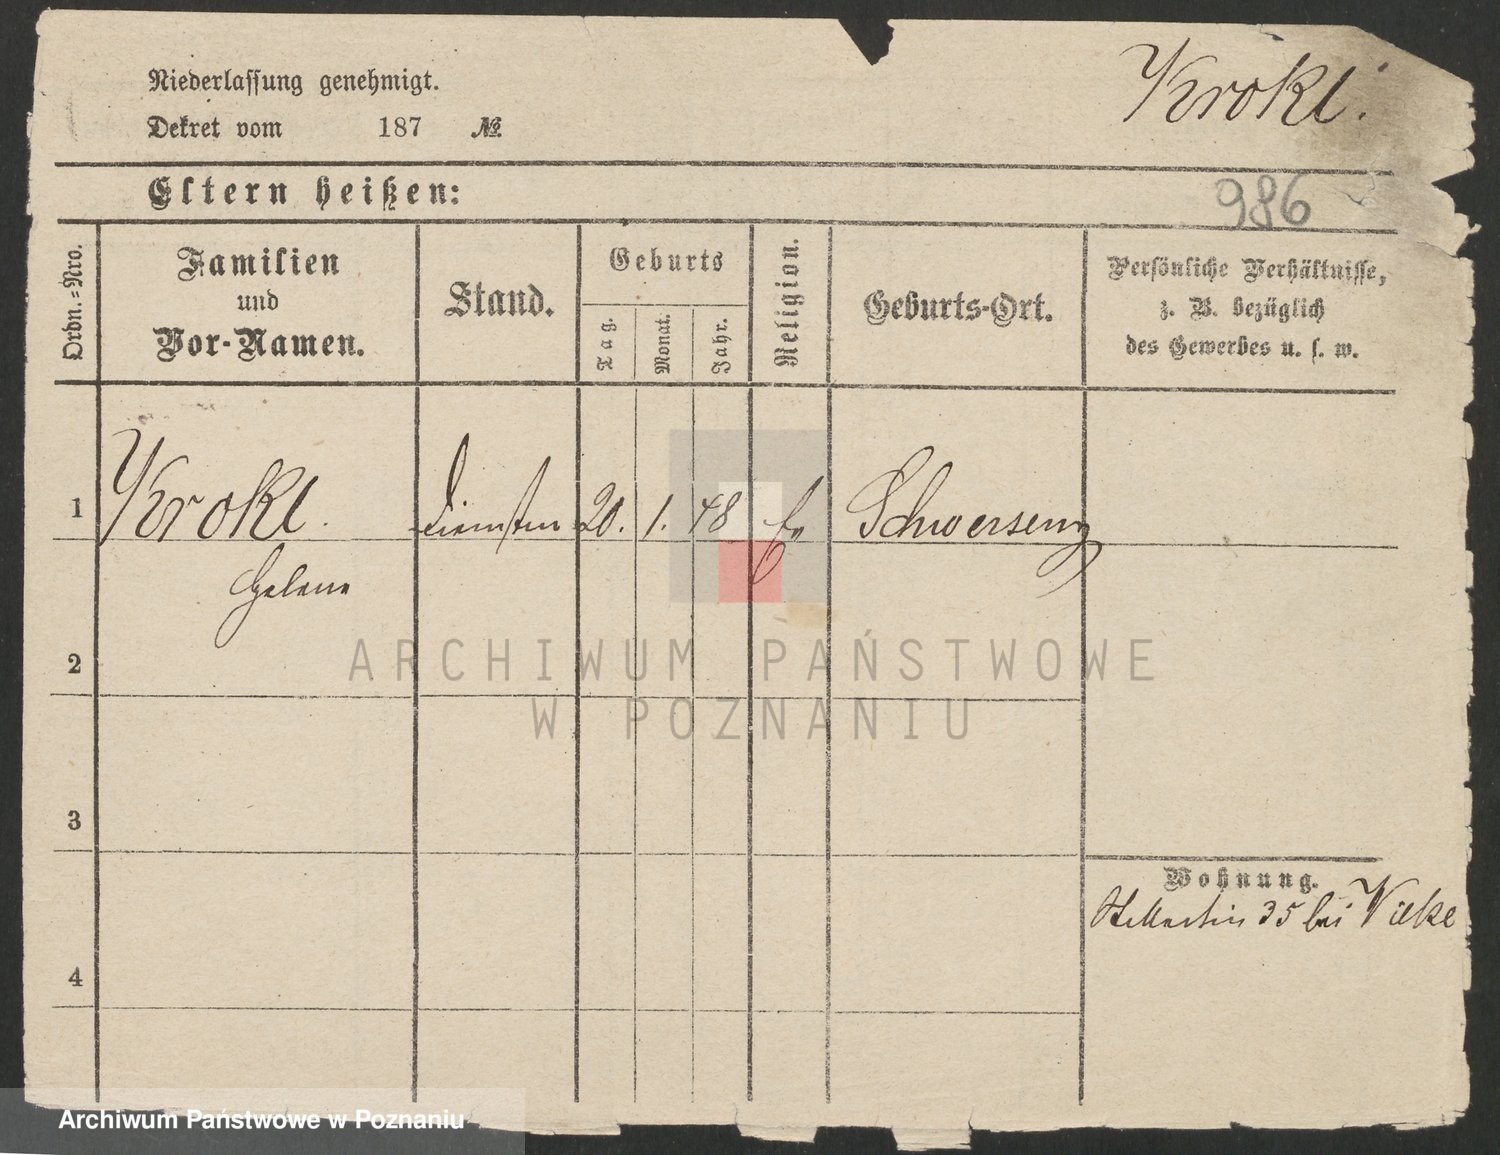 Niederlassung genehmigt.
Krokl.
Dekret vom 187 №
Eltern heißen:
986
Ordn.-Nro.
Familien
und
Vor-Namen.
Stand.
Geburts
Tag.
Monat.
Jahr.
Religion.
Geburts-Ort.
Persönliche Verhältnisse,
z. B. bezüglich
des Gewerbes u. s. w.
1 Krokl. 20. 1. 48 Schwersenz
Helene
2
ARCHIWUM PAŃSTWOWE
W POZNANIU
3
Wohnung.
St. Martin 35 bei Wilke
4
Archiwum Państwowe w Poznaniu